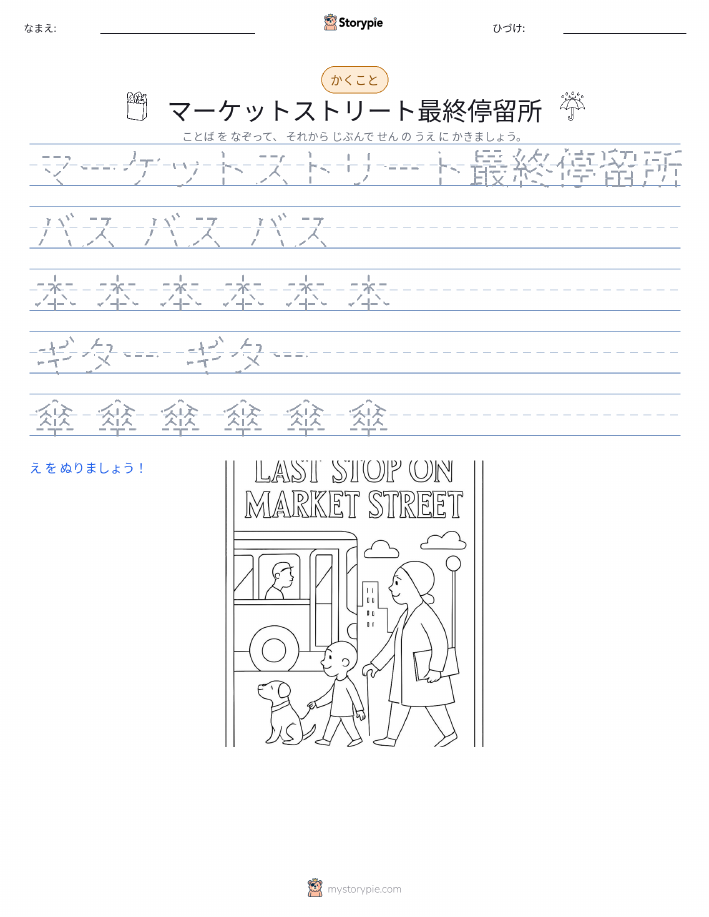 なまえ:
Storypie
ひづけ:
かくこと
マーケットストリート最終停留所
ことば を なぞって、 それから じぶんで せん の うえ に かきましょう。
マーケットストリート最終停留所
バス バス バス
本 本 本 本 本 本
ギター ギター
傘 傘 傘 傘 傘 傘
え を ぬりましょう！
LAST STOP ON
MARKET STREET
mystorypie.com